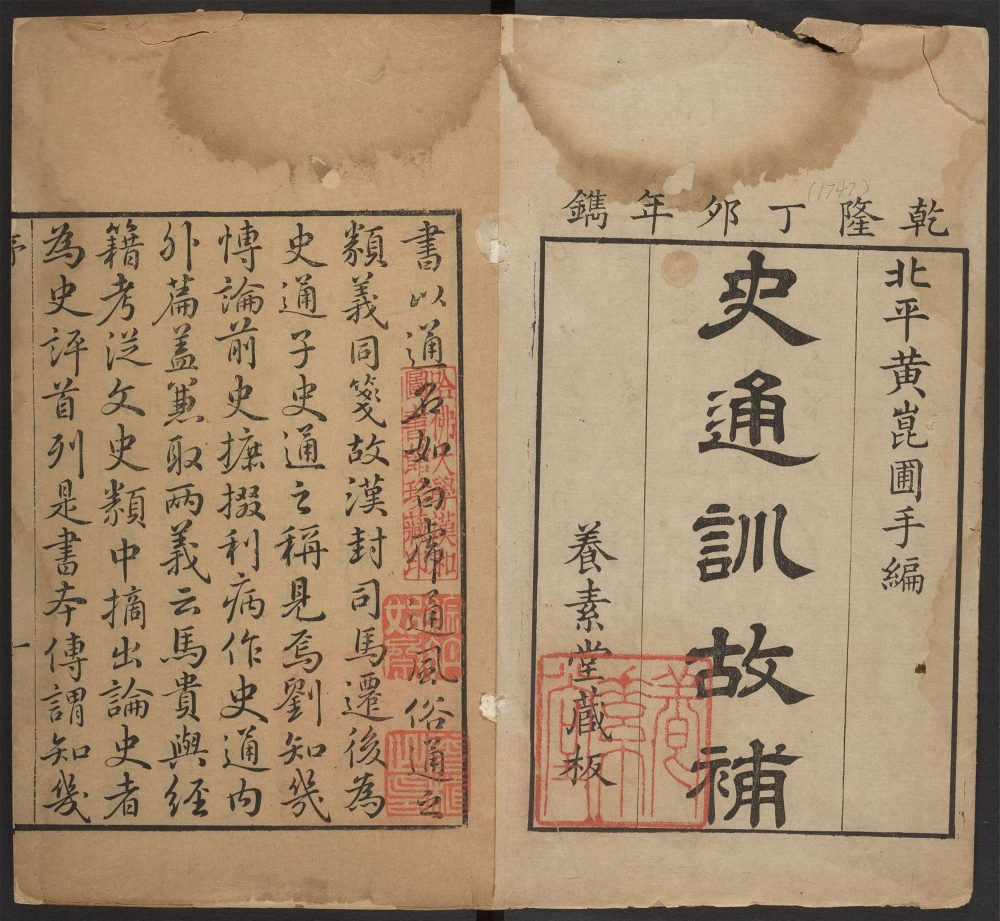 乾隆丁夘年鐫
(1747)
北平黄崑圃手編
史通訓故補
養素堂藏板
書以通名如白虎通風俗通之
類義同箋故漢封司馬遷後為
史通子史通之稱見焉劉知幾
愽論前史摭掇利病作史通内
外篇葢兼取兩義云馬貴與經
籍考従文史類中摘出論史者
為史評首列是書本傳謂知幾
序
一
哈佛大學漢和
圖書館珍藏印